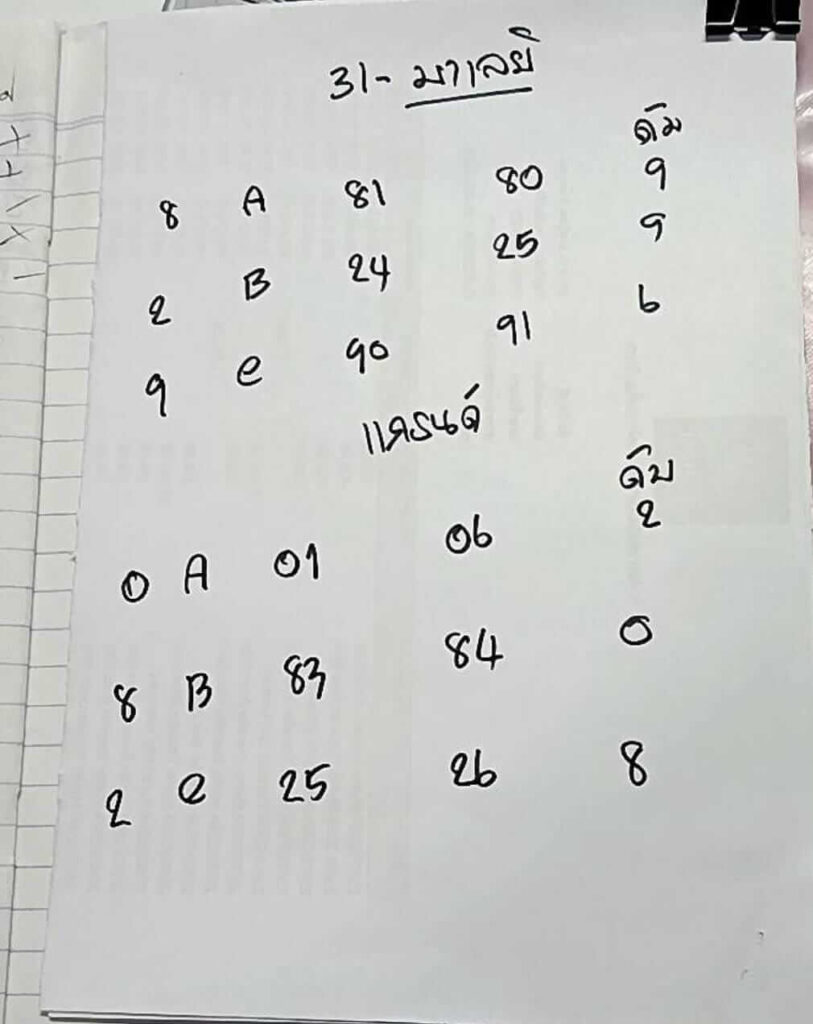 31- มาเลย์
ดับ
8 A 81 80 9
2 B 24 25 9
9 e 90 91 6
แกรนด์
ดับ
0 A 01 06 2
8 B 83 84 0
2 e 25 26 8